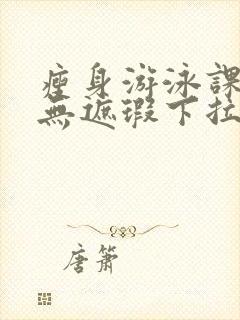 瘦身游泳課
無遮瑕下拉
唐簫